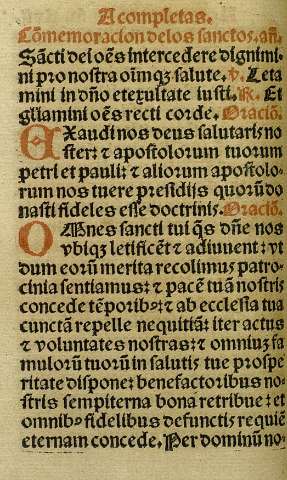 A completas.
Cõmemoracion de los sanctos. añ.
Sãcti dei oẽs intercedere dignimi
ni pro nostra oĩmqꝫ salute. v. Leta
mini in dño et exultate iusti. R. Et
gliamini oẽs recti corde. Oraciõ.
EXaudi nos deus salutaris no
ster: ⁊ apostolorum tuorum
petri et pauli: ⁊ aliorum apostolo⸗
rum nos tuere presidijs quorũ do
nasti fideles esse doctrinis. Oraciõ.
OMnes sancti tui q̃s dñe nos
vbiqꝫ letificẽt ⁊ adiuuent: vt
dum eorũ merita recolimus patro⸗
cinia sentiamus: ⁊ pacẽ tuã nostris
concede tẽporibꝰ: ⁊ ab ecclesia tua
cunctã repelle nequitiã: iter actus
⁊ voluntates nostras: ⁊ omniuꝫ fa
mulorũ tuorũ in salutis tue prospe
ritate dispone: benefactoribus no⸗
stris sempiterna bona retribue: et
omnibꝰ fidelibus defunctis requiẽ
eternam concede. Per dominũ no⸗